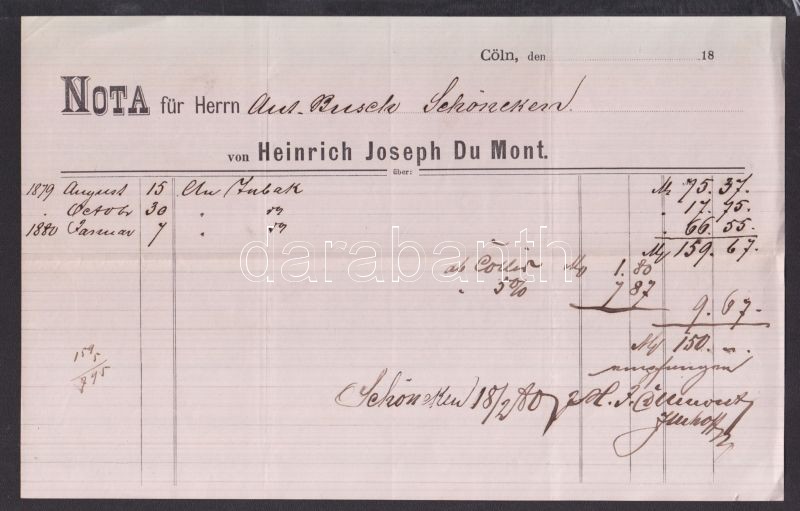 Cöln, den 18
NOTA für Herrn Ant. Busch Schönecken.
von Heinrich Joseph Du Mont.
über:
1879 August 15 An Tabak M 75. 37.
" Octobr 30 " " " 17. 75.
1880 Januar 7 " " " 66. 55.
M 159. 67.
ab M 1. 80
" 5% 7 87
9. 67.
M 150. "
empfangen
Schönecken 18/2 80 H. J. DuMont
Imhoff
darabanth